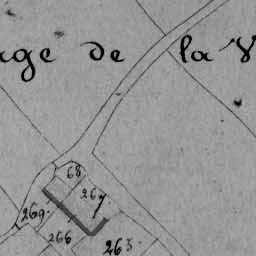 age de la V
68
267
269.
266
265.